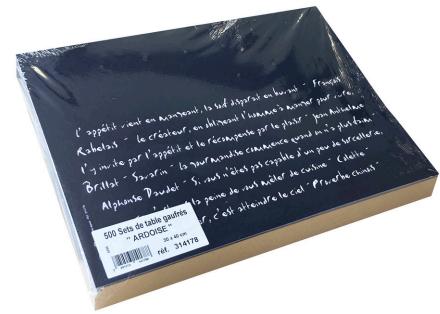 L'appétit vient en mangeant, la soif disparaît en buvant - François
Rabelais - le créateur, en obligeant l'homme à manger pour vivre,
l'y invite par l'appétit et le récompense par le plaisir - Jean Anthelme
Brillat - Savarin - la gourmandise commence quand on n'a plus faim -
Alphonse Daudet - Si vous n'êtes pas capable d'un peu de sorcellerie,
la peine de vous mêler de cuisine - Colette -
, c'est atteindre le ciel - Proverbe chinois -
500 Sets de table gaufrés
" ARDOISE "
30 x 40 cm
réf. 314178